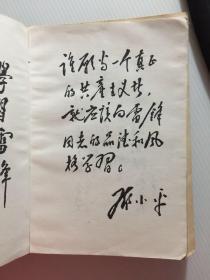 谁愿当一个真正
的共产主义者,
就应该向雷锋
同志的品德和风
格学习。
邓小平
學習雷鋒